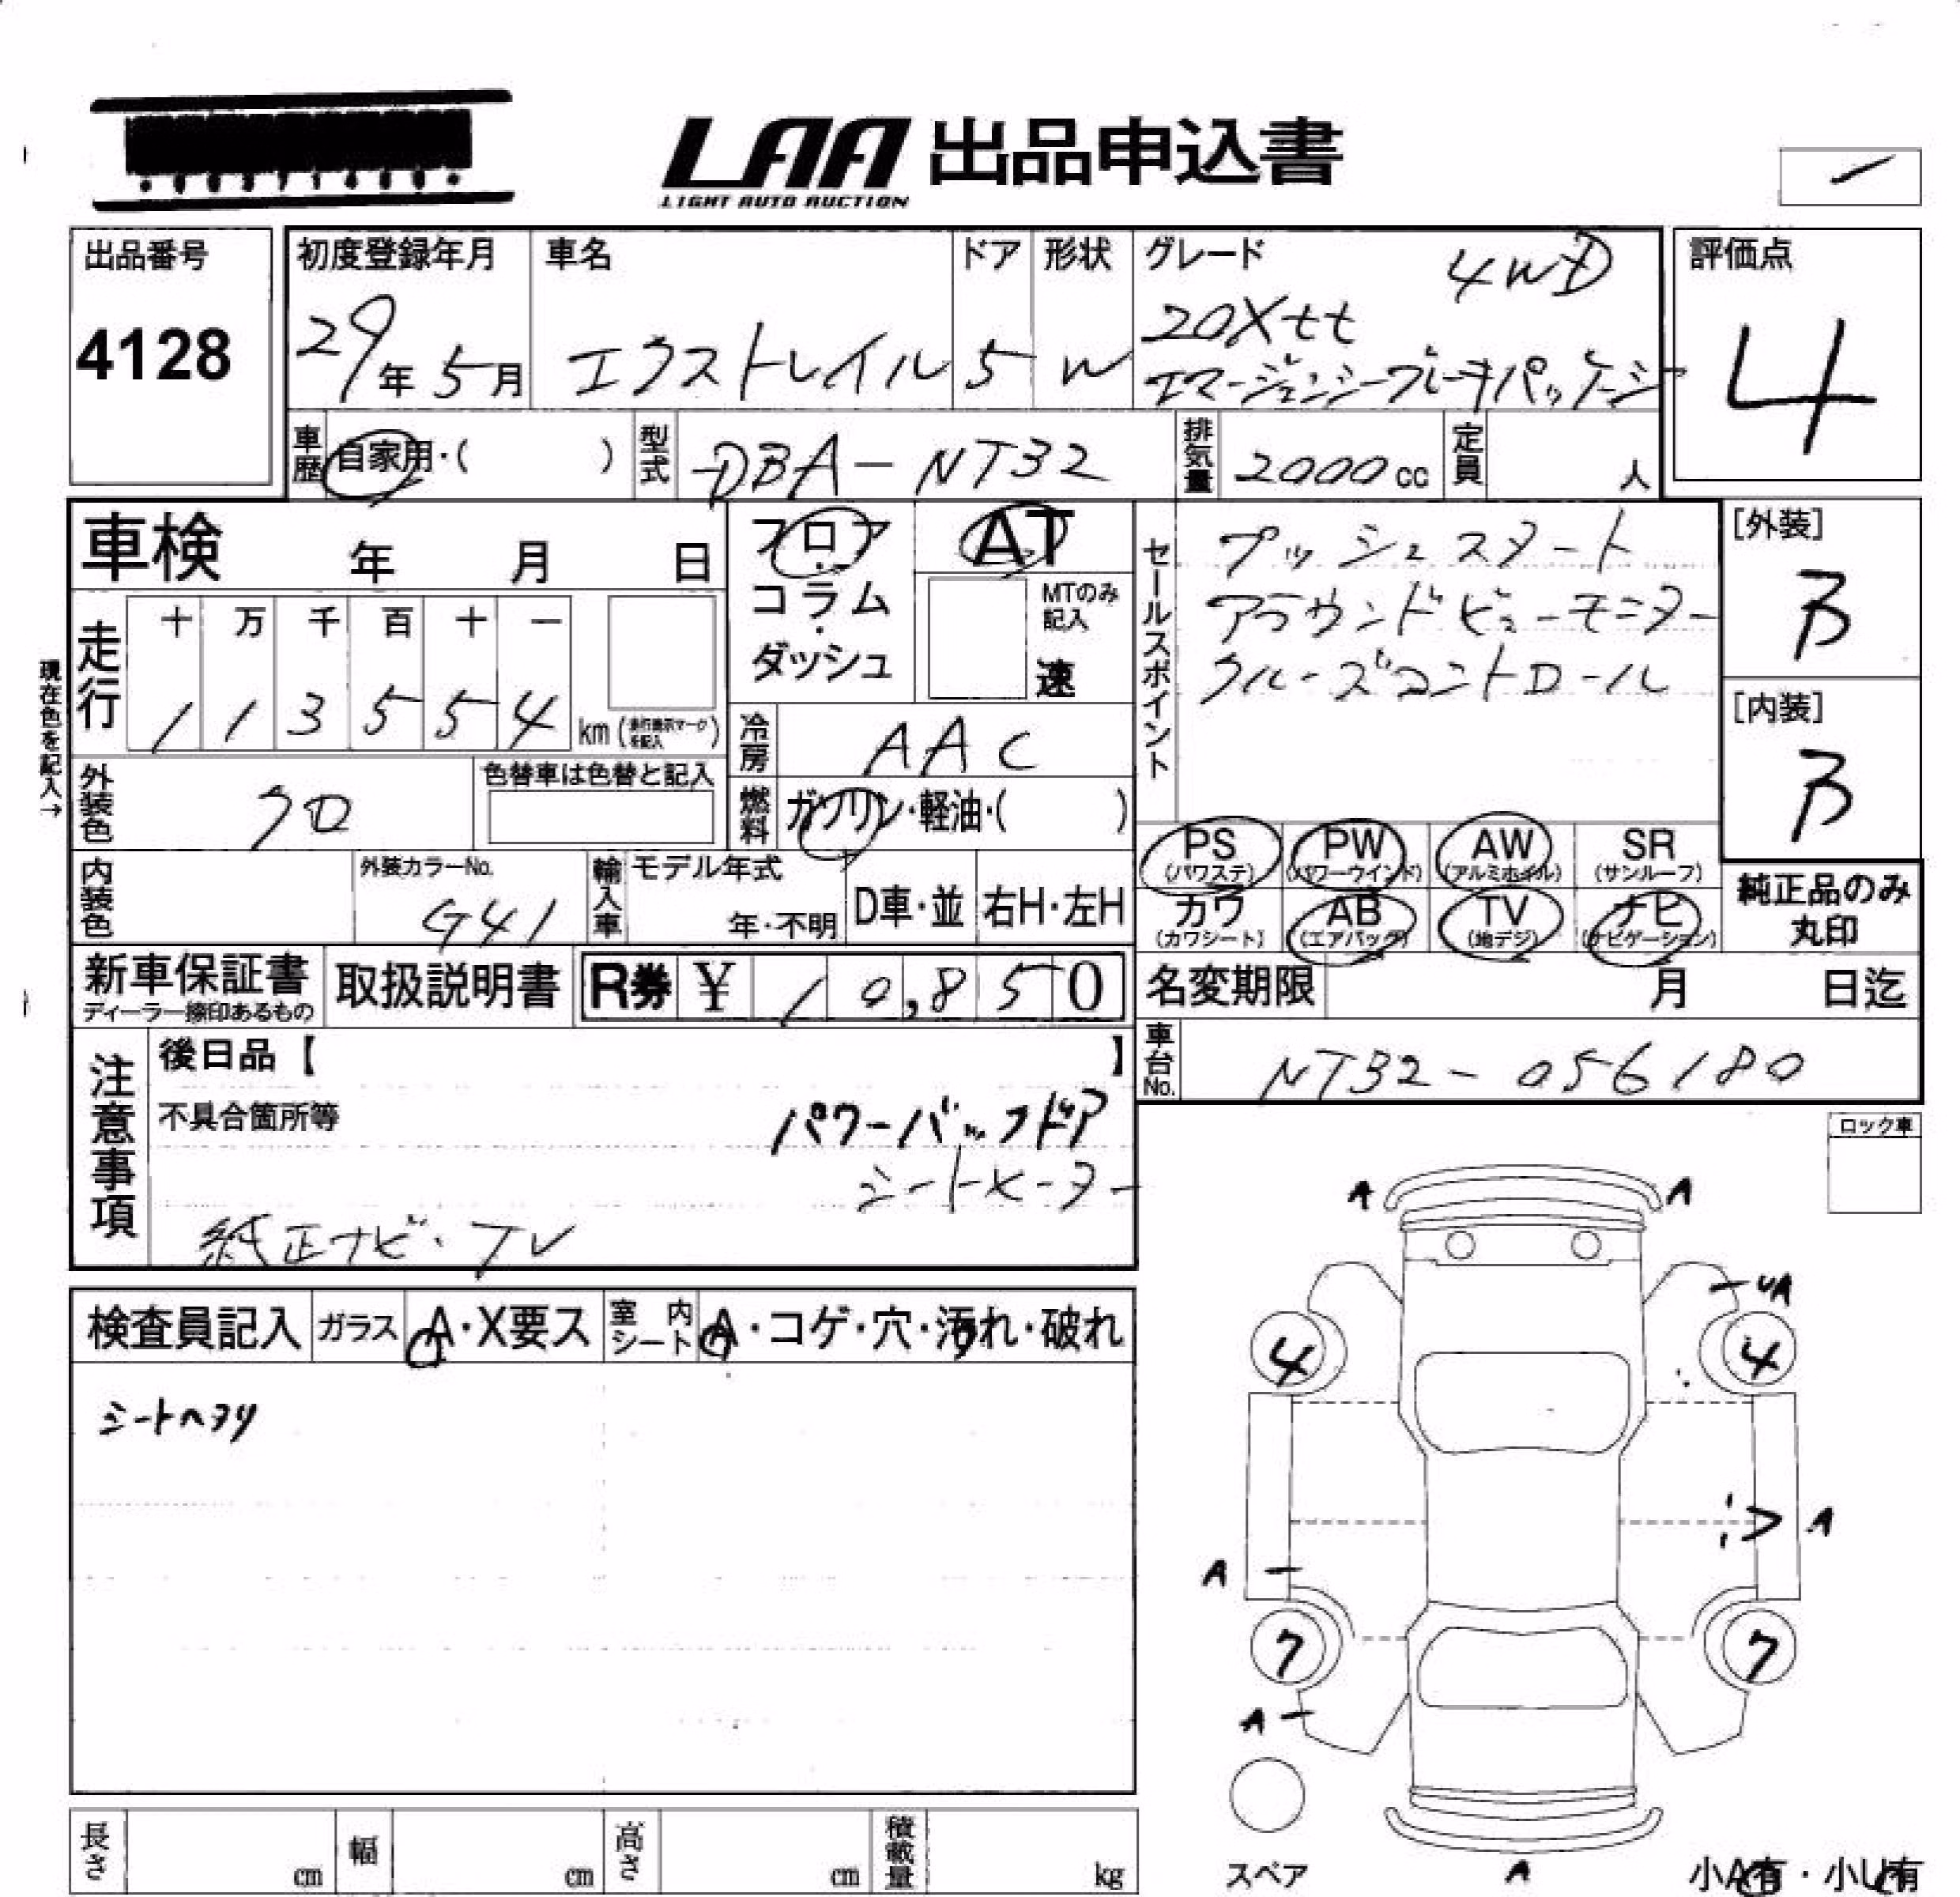 LAA 出品申込書
LIGHT AUTO AUCTION
出品番号
4128
初度登録年月
29年 5月
車名
エクストレイル
ドア
5
形状
W
グレード
4WD
20Xtt
エマージェンシーブレーキパッケージ
評価点
4
車歴
自家用・( )
型式
DBA-NT32
排気量
2000cc
定員
人
車検 年 月 日
フロア
・
コラム
・
ダッシュ
AT
MTのみ
記入
速
セールスポイント
プッシュスタート
アラウンドビューモニター
クルーズコントロール
[外装]
B
[内装]
B
現在色を記入→
走行
十 万 千 百 十 一
1 1 3 5 5 4 km (走行表示マークを記入)
冷房
AAC
外装色
クロ
色替車は色替と記入
燃料
ガソリン・軽油・( )
PS
(パワステ)
PW
(パワーウインド)
AW
(アルミホイル)
SR
(サンルーフ)
カワ
(カワシート)
AB
(エアバッグ)
TV
(地デジ)
ナビ
(ナビゲーション)
純正品のみ
丸印
内装色
外装カラーNo.
G41
輸入車
モデル年式
年・不明
D車・並
右H・左H
新車保証書
ディーラー捺印あるもの
取扱説明書
R券 ¥ 10,850
名変期限 月 日迄
車台No.
NT32-056180
注意事項
後日品【 】
不具合箇所等
パワーバックドア
シートヒーター
純正ナビ・TV
ロック車
検査員記入
ガラス
A・X要ス
室内シート
A・コゲ・穴・汚れ・破れ
シートヘタリ
A A
UA
4 4
A
A
7 7
A
スペア
A
小A有・小U有
長さ cm
幅 cm
高さ cm
積載量 kg